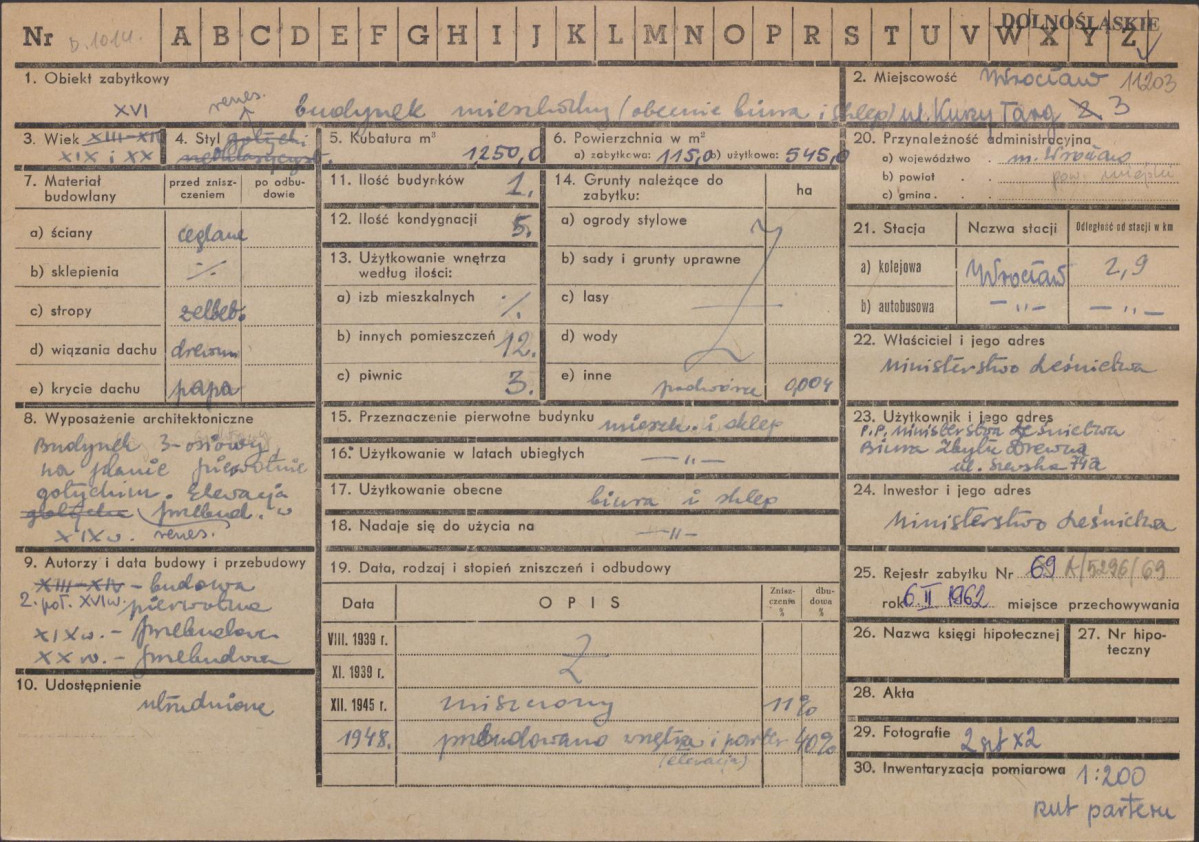 Nr b.1014. A B C D E F G H I J K L M N O P R S T U V W X Y Z
DOLNOŚLĄSKIE
1. Obiekt zabytkowy
budynek mieszkalny (obecnie biura i sklep) ul. Kurzy Targ 2 3
2. Miejscowość Wrocław 11203
3. Wiek XIII-XIV
XVI
XIX i XX
4. Styl gotycki
renes.
5. Kubatura m³ 1250,0
6. Powierzchnia w m²
a) zabytkowa: 115,0 b) użytkowa: 545,0
7. Materiał budowlany
przed zniszczeniem
po odbudowie
a) ściany ceglane
b) sklepienia %
c) stropy żelbet.
d) wiązania dachu drewn
e) krycie dachu papa
8. Wyposażenie architektoniczne
Budynek 3-osiowy
na planie pierwotnie
gotyckim. Elewacja
gotycka przebud. w
XIX w. renes.
9. Autorzy i data budowy i przebudowy
XIII-XIV - budowa
2. poł. XVI w. pierwotna
XIX w. - przebudowa
XX w. - przebudowa
10. Udostępnienie
utrudnione
11. Ilość budynków 1.
12. Ilość kondygnacji 5.
13. Użytkowanie wnętrza
według ilości:
a) izb mieszkalnych %
b) innych pomieszczeń 12.
c) piwnic 3.
14. Grunty należące do
zabytku:
ha
a) ogrody stylowe
b) sady i grunty uprawne
c) lasy
d) wody
e) inne podwórze 0,004
15. Przeznaczenie pierwotne budynku mieszk. i sklep
16. Użytkowanie w latach ubiegłych —"—
17. Użytkowanie obecne biura i sklep
18. Nadaje się do użycia na —"—
19. Data, rodzaj i stopień zniszczeń i odbudowy
Data OPIS Zniszczenie % dbudowa %
VIII. 1939 r.
XI. 1939 r.
XII. 1945 r. zniszczony 11%
1948. przebudowano wnętrza i parter 40%
(elewacja)
20. Przynależność administracyjna
a) województwo m. Wrocław
b) powiat pow. miejski
c) gmina
21. Stacja Nazwa stacji Odległość od stacji w km
a) kolejowa Wrocław 2,9
b) autobusowa —"— —"—
22. Właściciel i jego adres
Ministerstwo Leśnictwa
23. Użytkownik i jego adres
P.P. Ministerstwa Leśnictwa
Biura Zbytu Drewna
ul. Szewska 74a
24. Inwestor i jego adres
Ministerstwo Leśnictwa
25. Rejestr zabytku Nr 69 A/5296/69
rok 6 II 1962 miejsce przechowywania
26. Nazwa księgi hipotecznej
27. Nr hipoteczny
28. Akta
29. Fotografie 2 szt x 2
30. Inwentaryzacja pomiarowa 1:200
rzut parteru